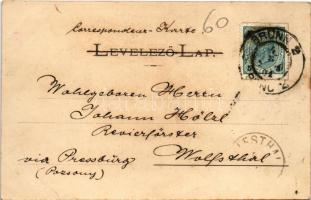 Correspondenz-Karte
60
LEVELEZŐ LAP.
BRÜNN
Wohlgeboren Herrn
Johann Hölzl
Revierförster
via Pressburg
Wolfsthal
(Pozsony)